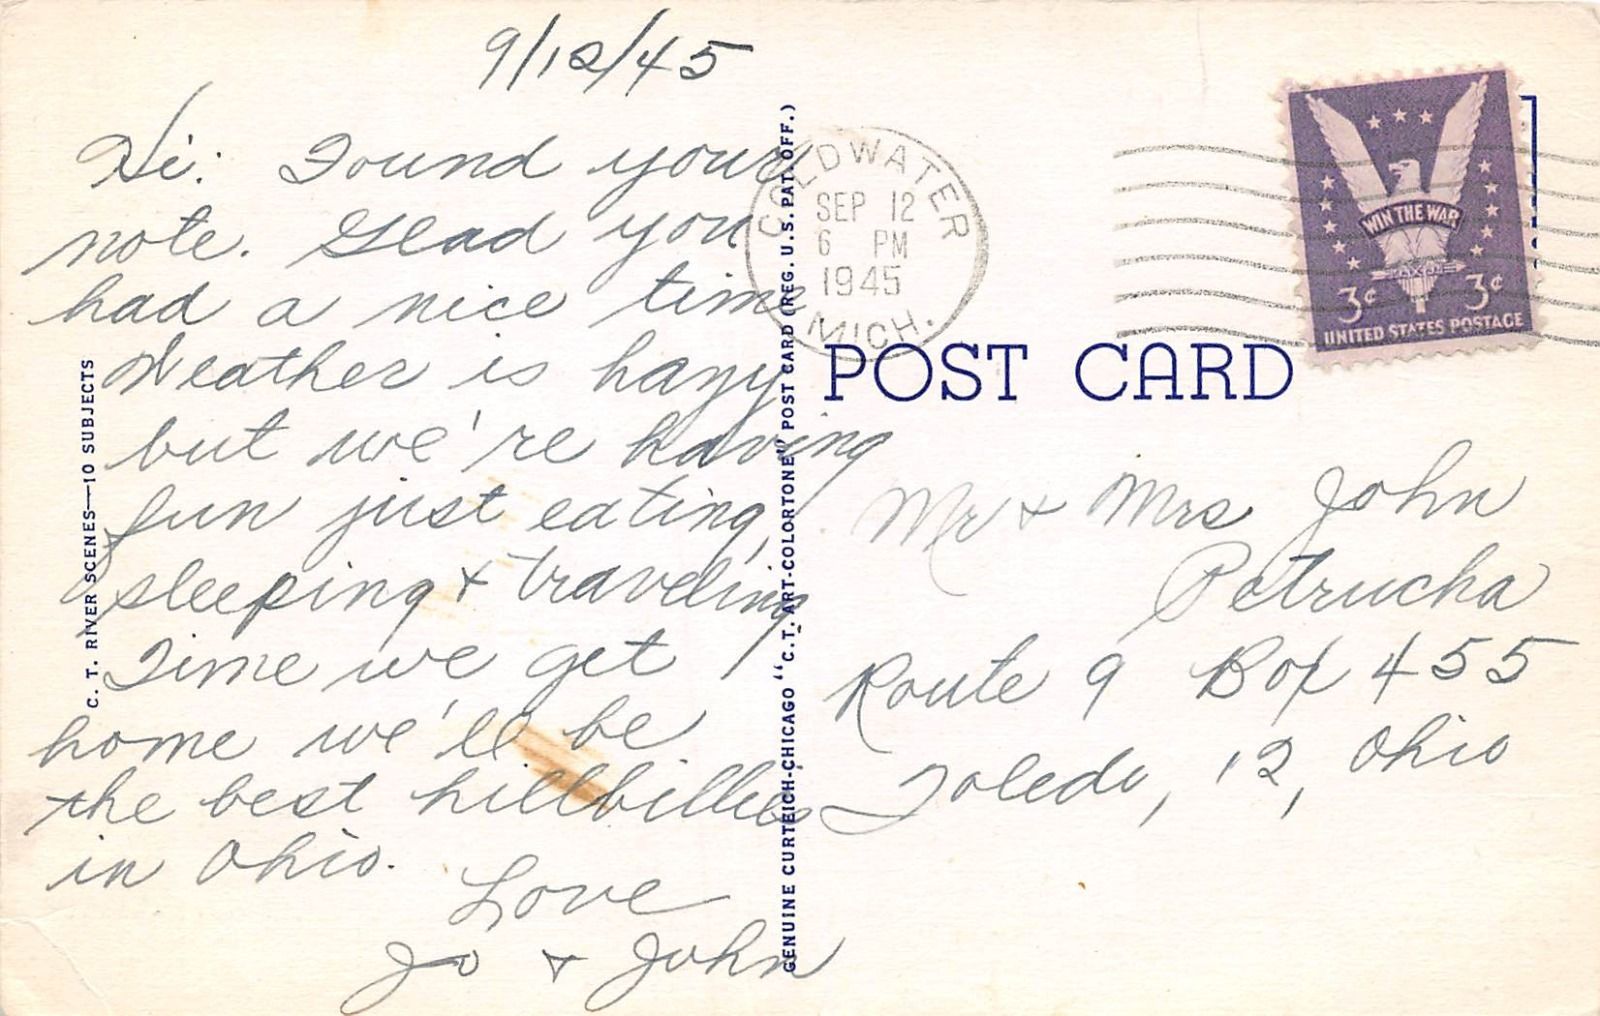 9/12/45
Hi: Found your
note. Glad you
had a nice time
Weather is hazy
but we're having
fun just eating,
sleeping + traveling
Time we get
home we'll be
the best hillbillies
in Ohio.
Love
Jo + John
C. T. RIVER SCENES—10 SUBJECTS
GENUINE CURTEICH-CHICAGO "C. T. ART-COLORTONE" POST CARD (REG. U. S. PAT. OFF.)
COLDWATER
SEP 12
6 PM
1945
MICH.
WIN THE WAR
3¢ 3¢
UNITED STATES POSTAGE
POST CARD
Mr + Mrs John
Petrucha
Route 9 Box 455
Toledo, 12, Ohio